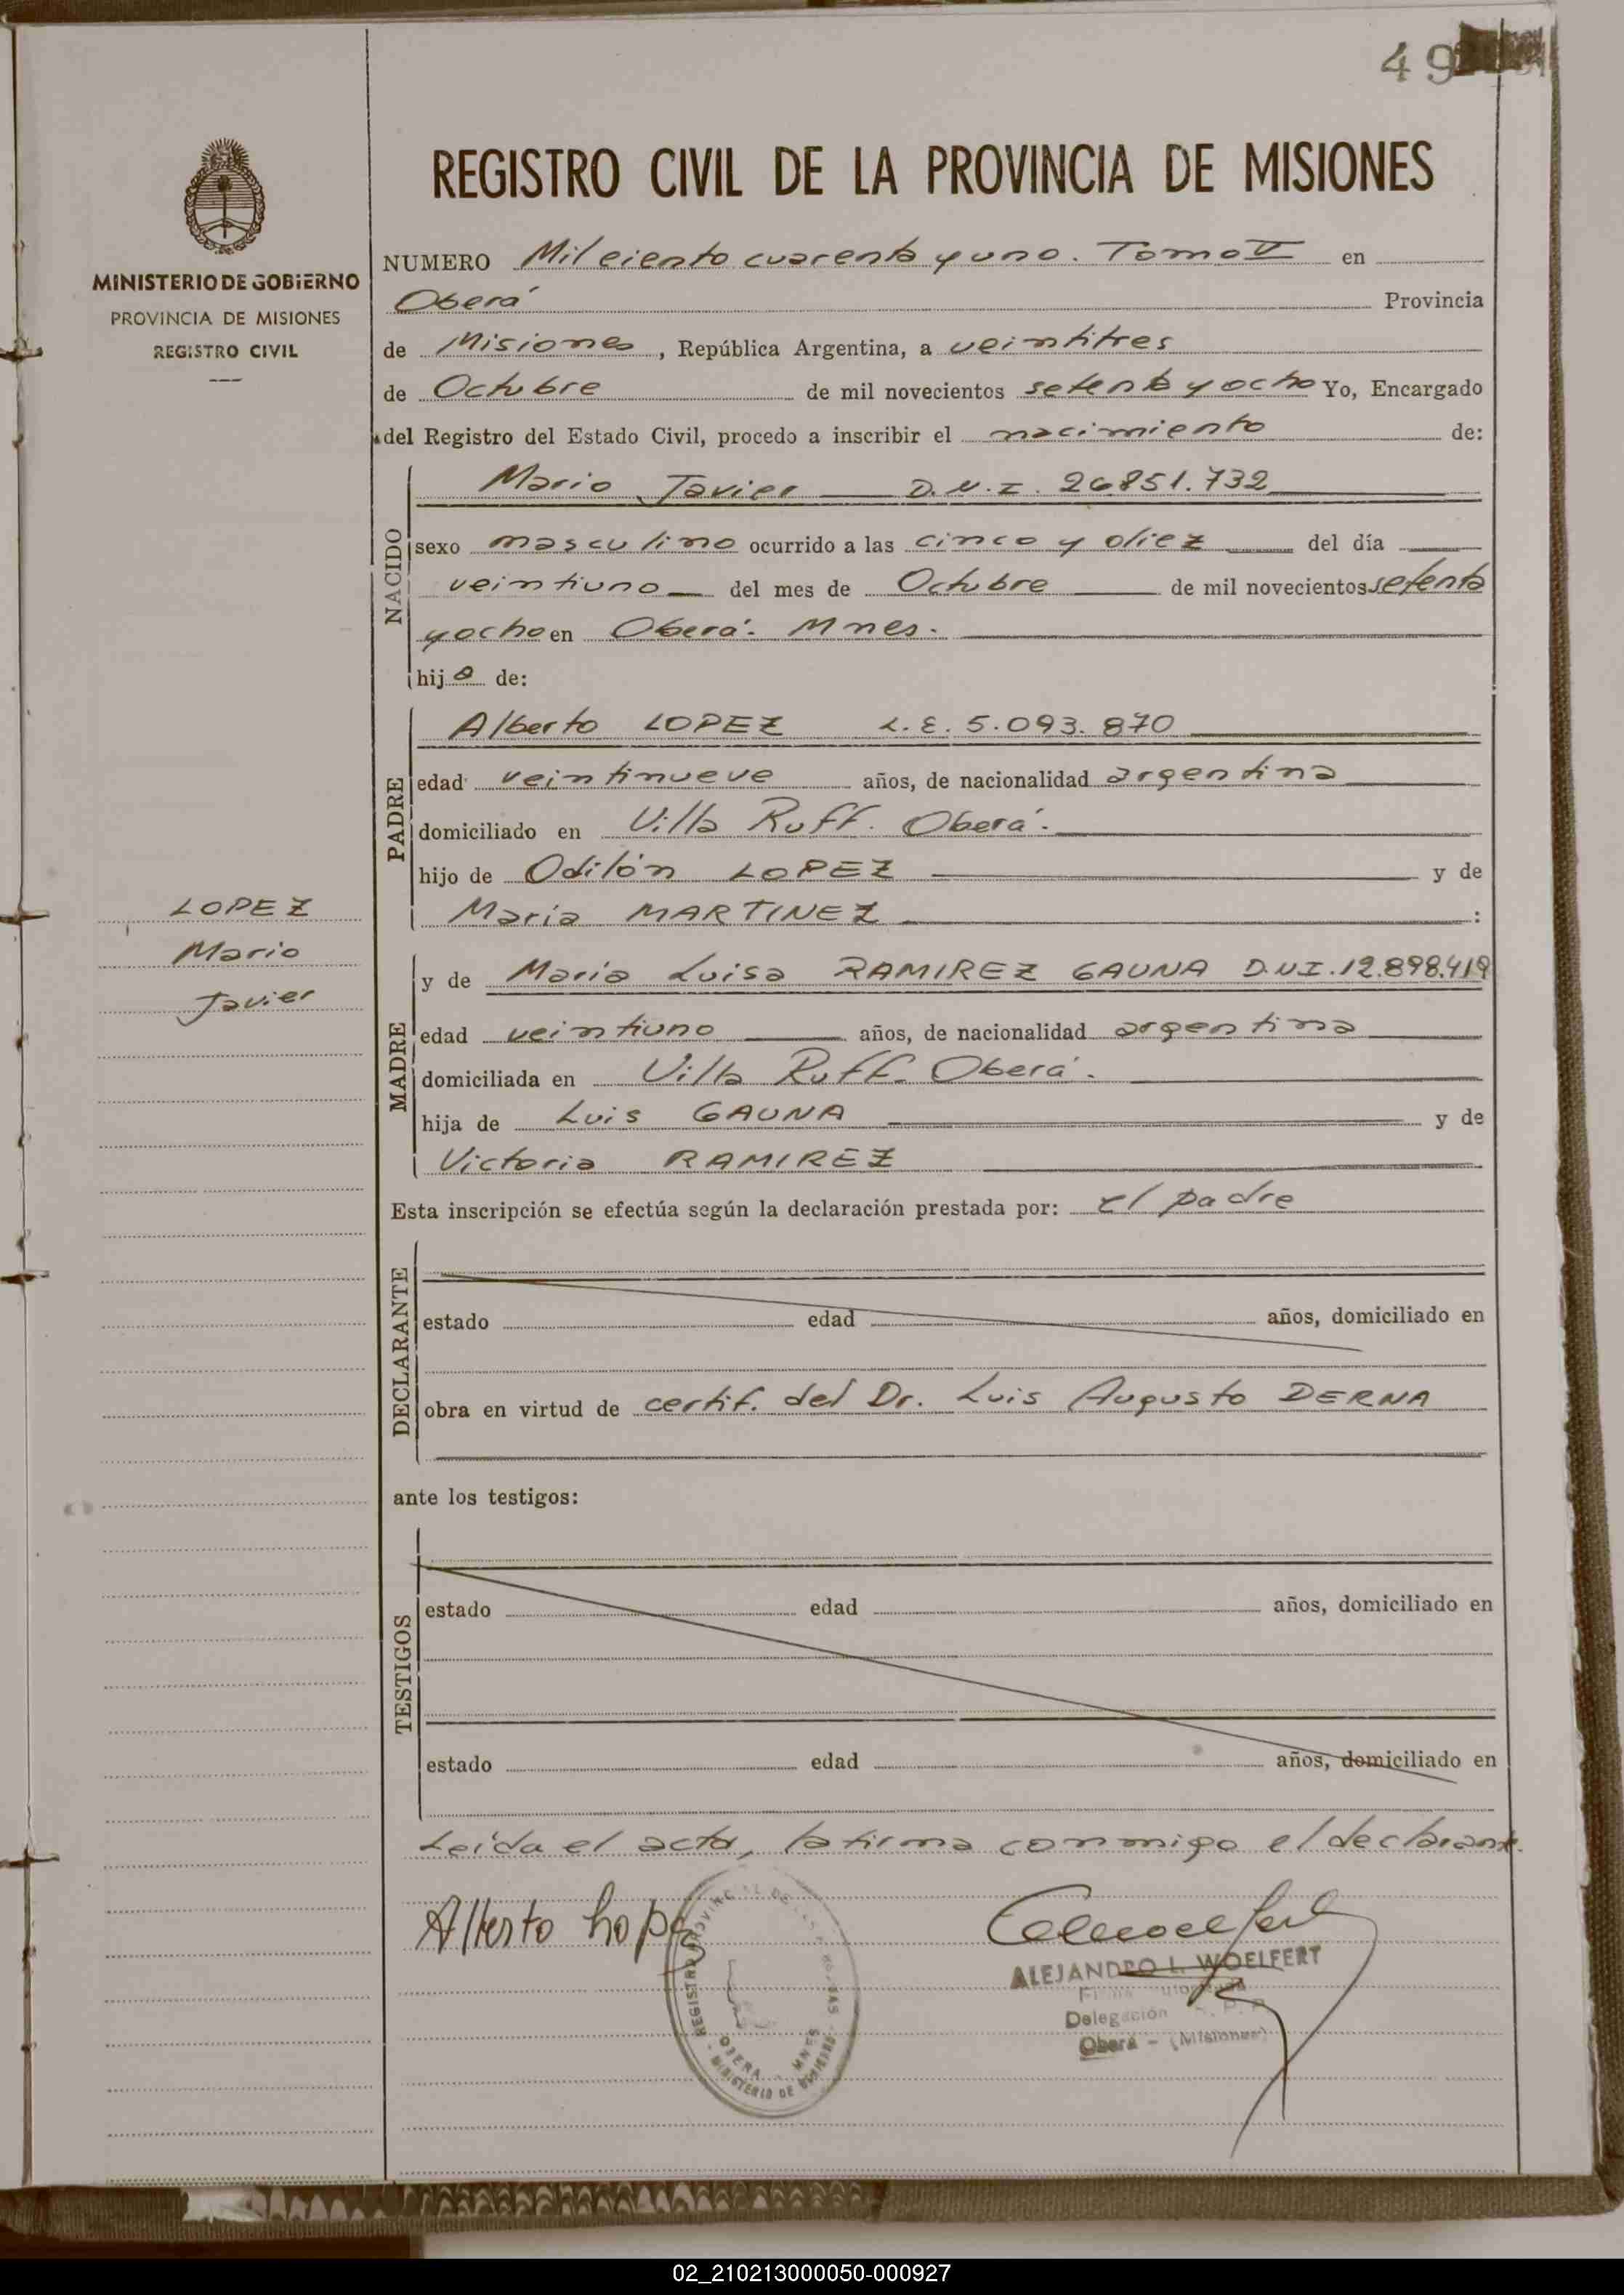 49
REGISTRO CIVIL DE LA PROVINCIA DE MISIONES
MINISTERIO DE GOBIERNO
PROVINCIA DE MISIONES
REGISTRO CIVIL
NUMERO Mil ciento cuarenta y uno. Tomo V en
Oberá Provincia
de Misiones, República Argentina, a veintitres
de Octubre de mil novecientos setenta y ocho Yo, Encargado
del Registro del Estado Civil, procedo a inscribir el nacimiento de:
NACIDO
Mario Javier D.N.I. 26.851.732
sexo masculino ocurrido a las cinco y diez del día
veintiuno del mes de Octubre de mil novecientos setenta
y ocho en Oberá. Mnes.
hijo de:
PADRE
Alberto LOPEZ L.E. 5.093.870
edad veintinueve años, de nacionalidad argentina
domiciliado en Villa Ruff. Oberá.
hijo de Odilón LOPEZ y de
María MARTINEZ :
LOPEZ
Mario
Javier
MADRE
y de María Luisa RAMIREZ GAUNA D.N.I. 12.898.419
edad veintiuno años, de nacionalidad argentina
domiciliada en Villa Ruff. Oberá.
hija de Luis GAUNA y de
Victoria RAMIREZ
Esta inscripción se efectúa según la declaración prestada por: el padre
DECLARANTE
estado edad años, domiciliado en
obra en virtud de certif. del Dr. Luis Augusto DERNA
ante los testigos:
TESTIGOS
estado edad años, domiciliado en
estado edad años, domiciliado en
Leída el acta, la firma conmigo el declarante.
Alberto Lopez
ALEJANDRO L. WOELFERT
Delegación
Oberá - (Misiones)
OBERA - MNES
MINISTERIO DE GOBIERNO
02_210213000050-000927